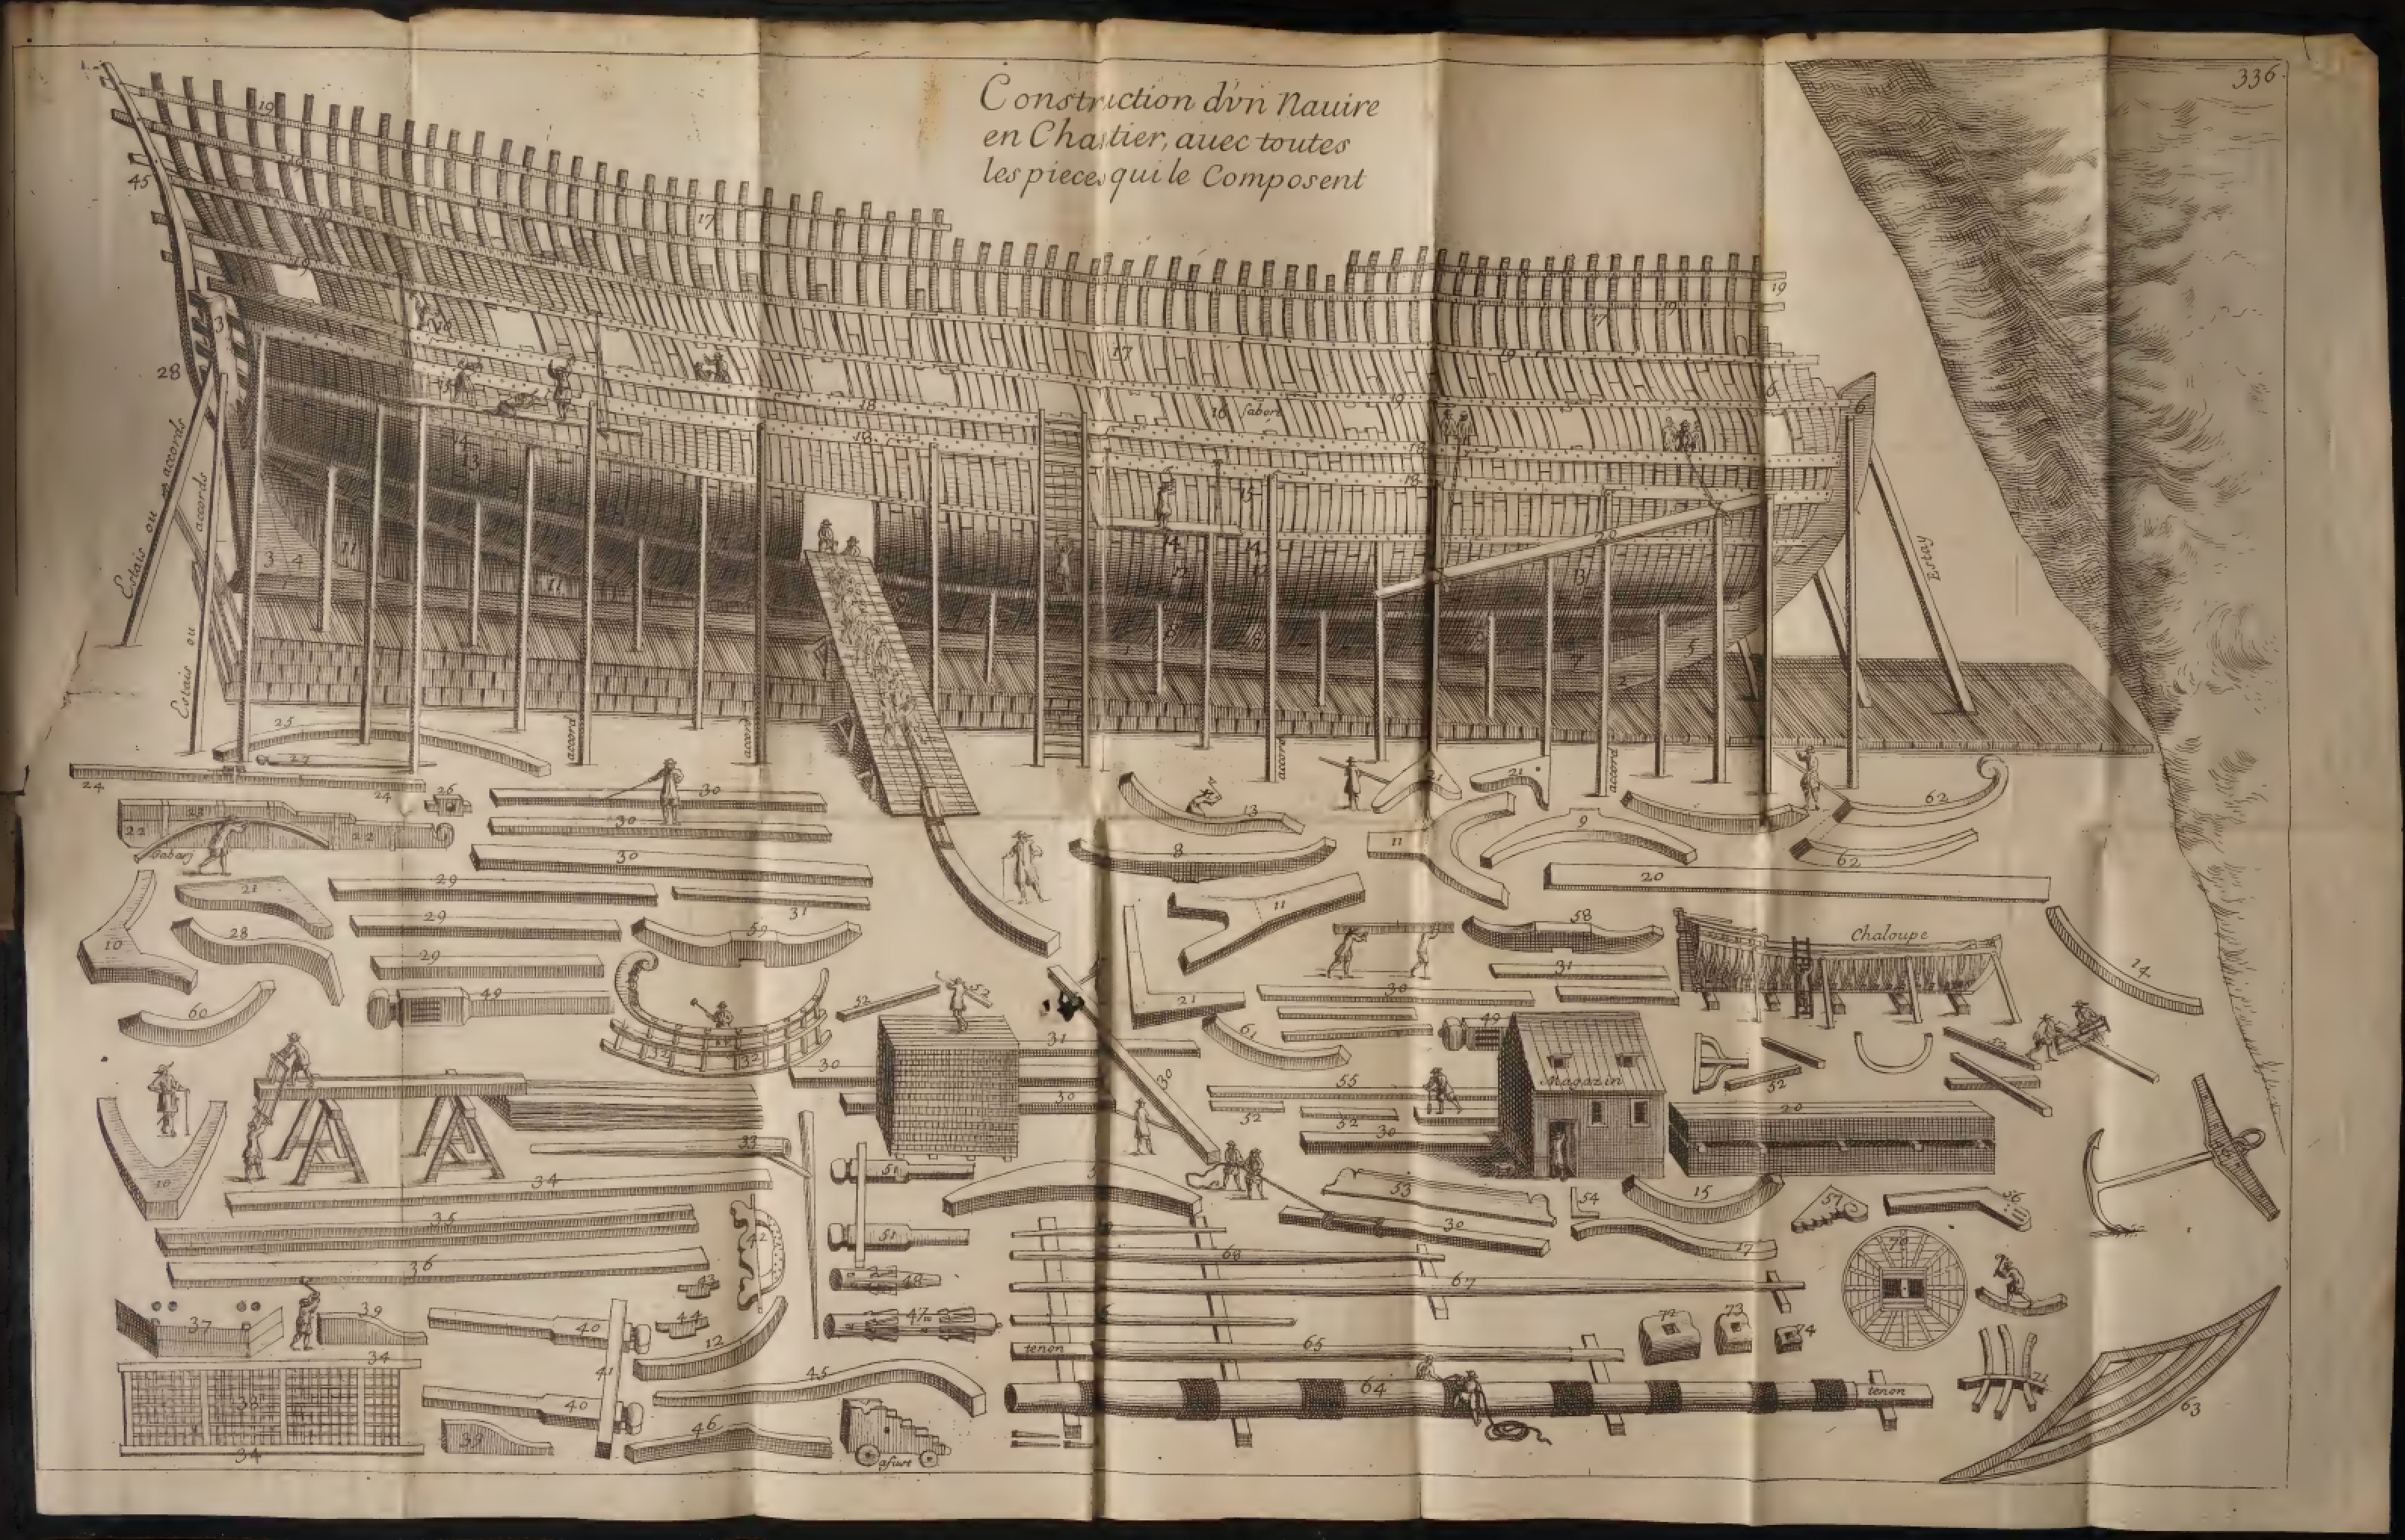 336.
Construction d'vn Nauire
en Chantier, auec toutes
les pieces qui le Composent
19
17
45
19
19
17
19
19
17
19
28
3
18
16 sabort
19
6
6
18
18
18
14
13
15
14
14
13
20
Estais ou accords
accords
Estais ou
Estay
3 4
11
11
8
8
7
5
2
accord
accord
accord
accord
25
27
24
24
26
30
30
30
22
22
Gabarj
13
21
21
62
62
8
11
9
20
21
29
29
29
31
10
28
59
58
11
Chaloupe
14
60
49
52
52
21
31
30
61
49
32
32
30
31
30
30
55
52
52
30
Magazin
52
20
10
33
34
35
36
51
51
53
54
15
57
56
30
17
42
43
44
48
47
68
67
70
37
39
40
12
41
72
73
74
34
38
34
40
39
45
46
afust
tenon
65
64
tenon
71
63